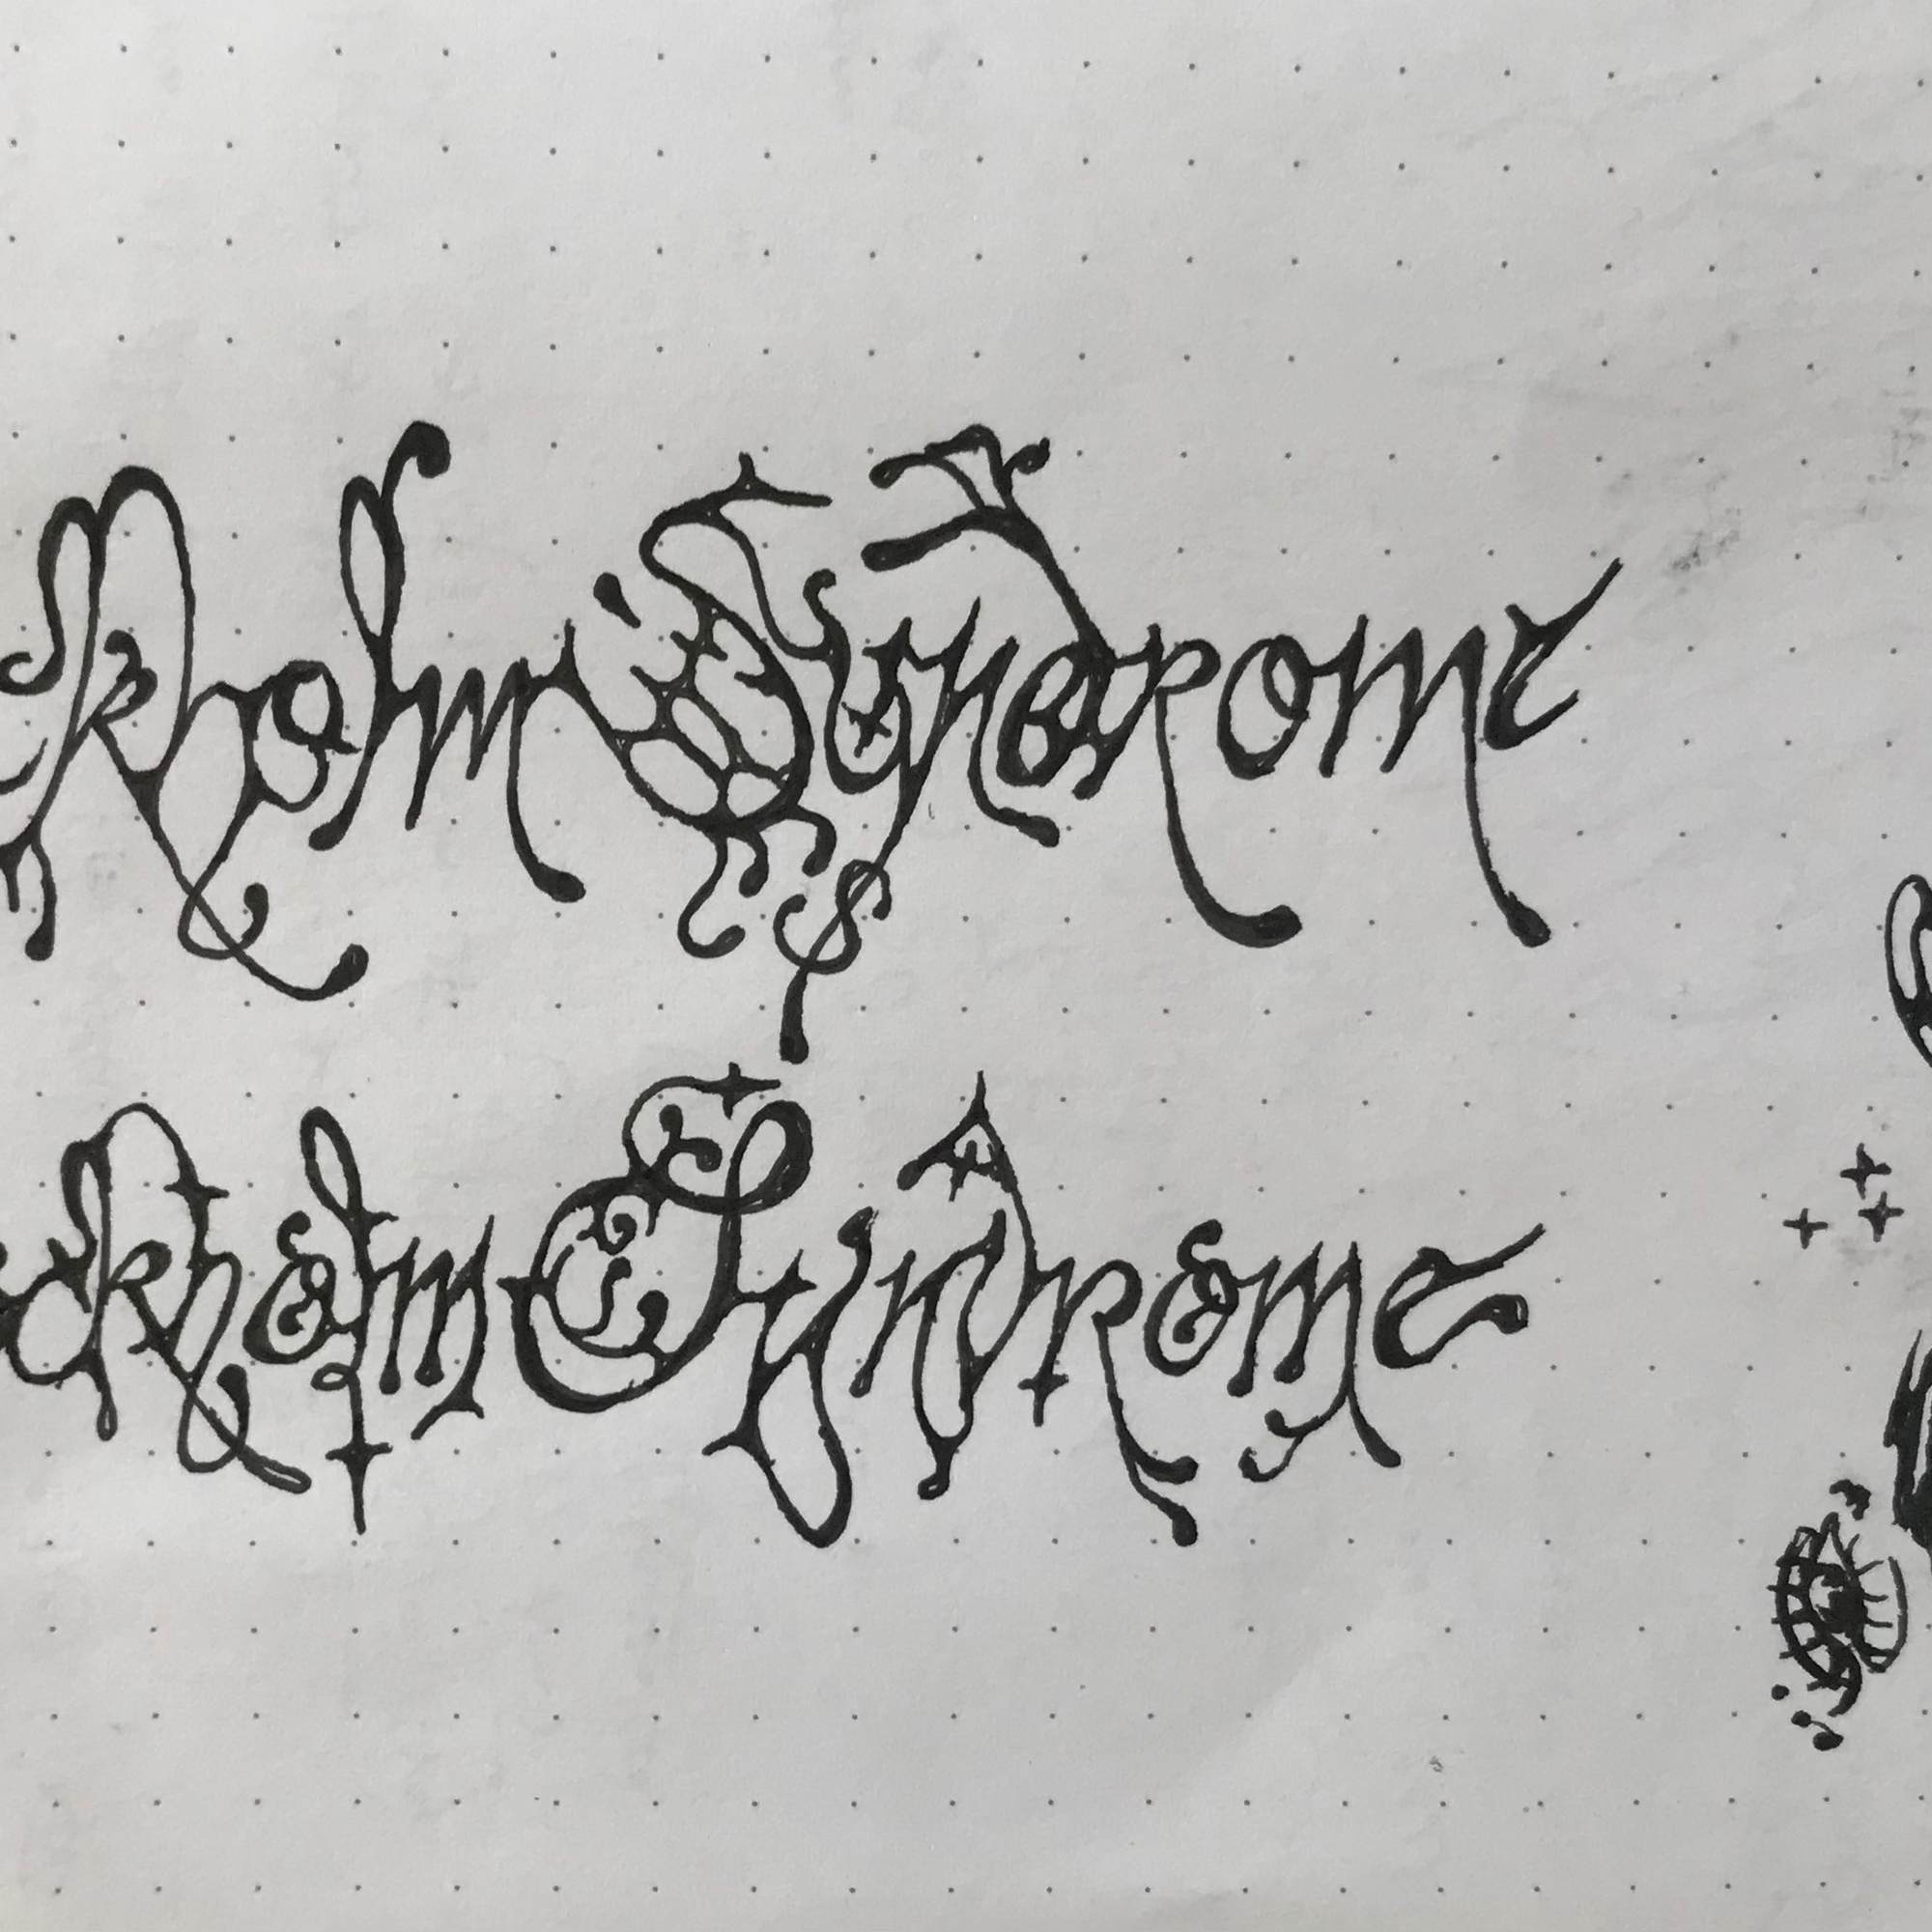 ckholm Syndrome
ckholm Syndrome